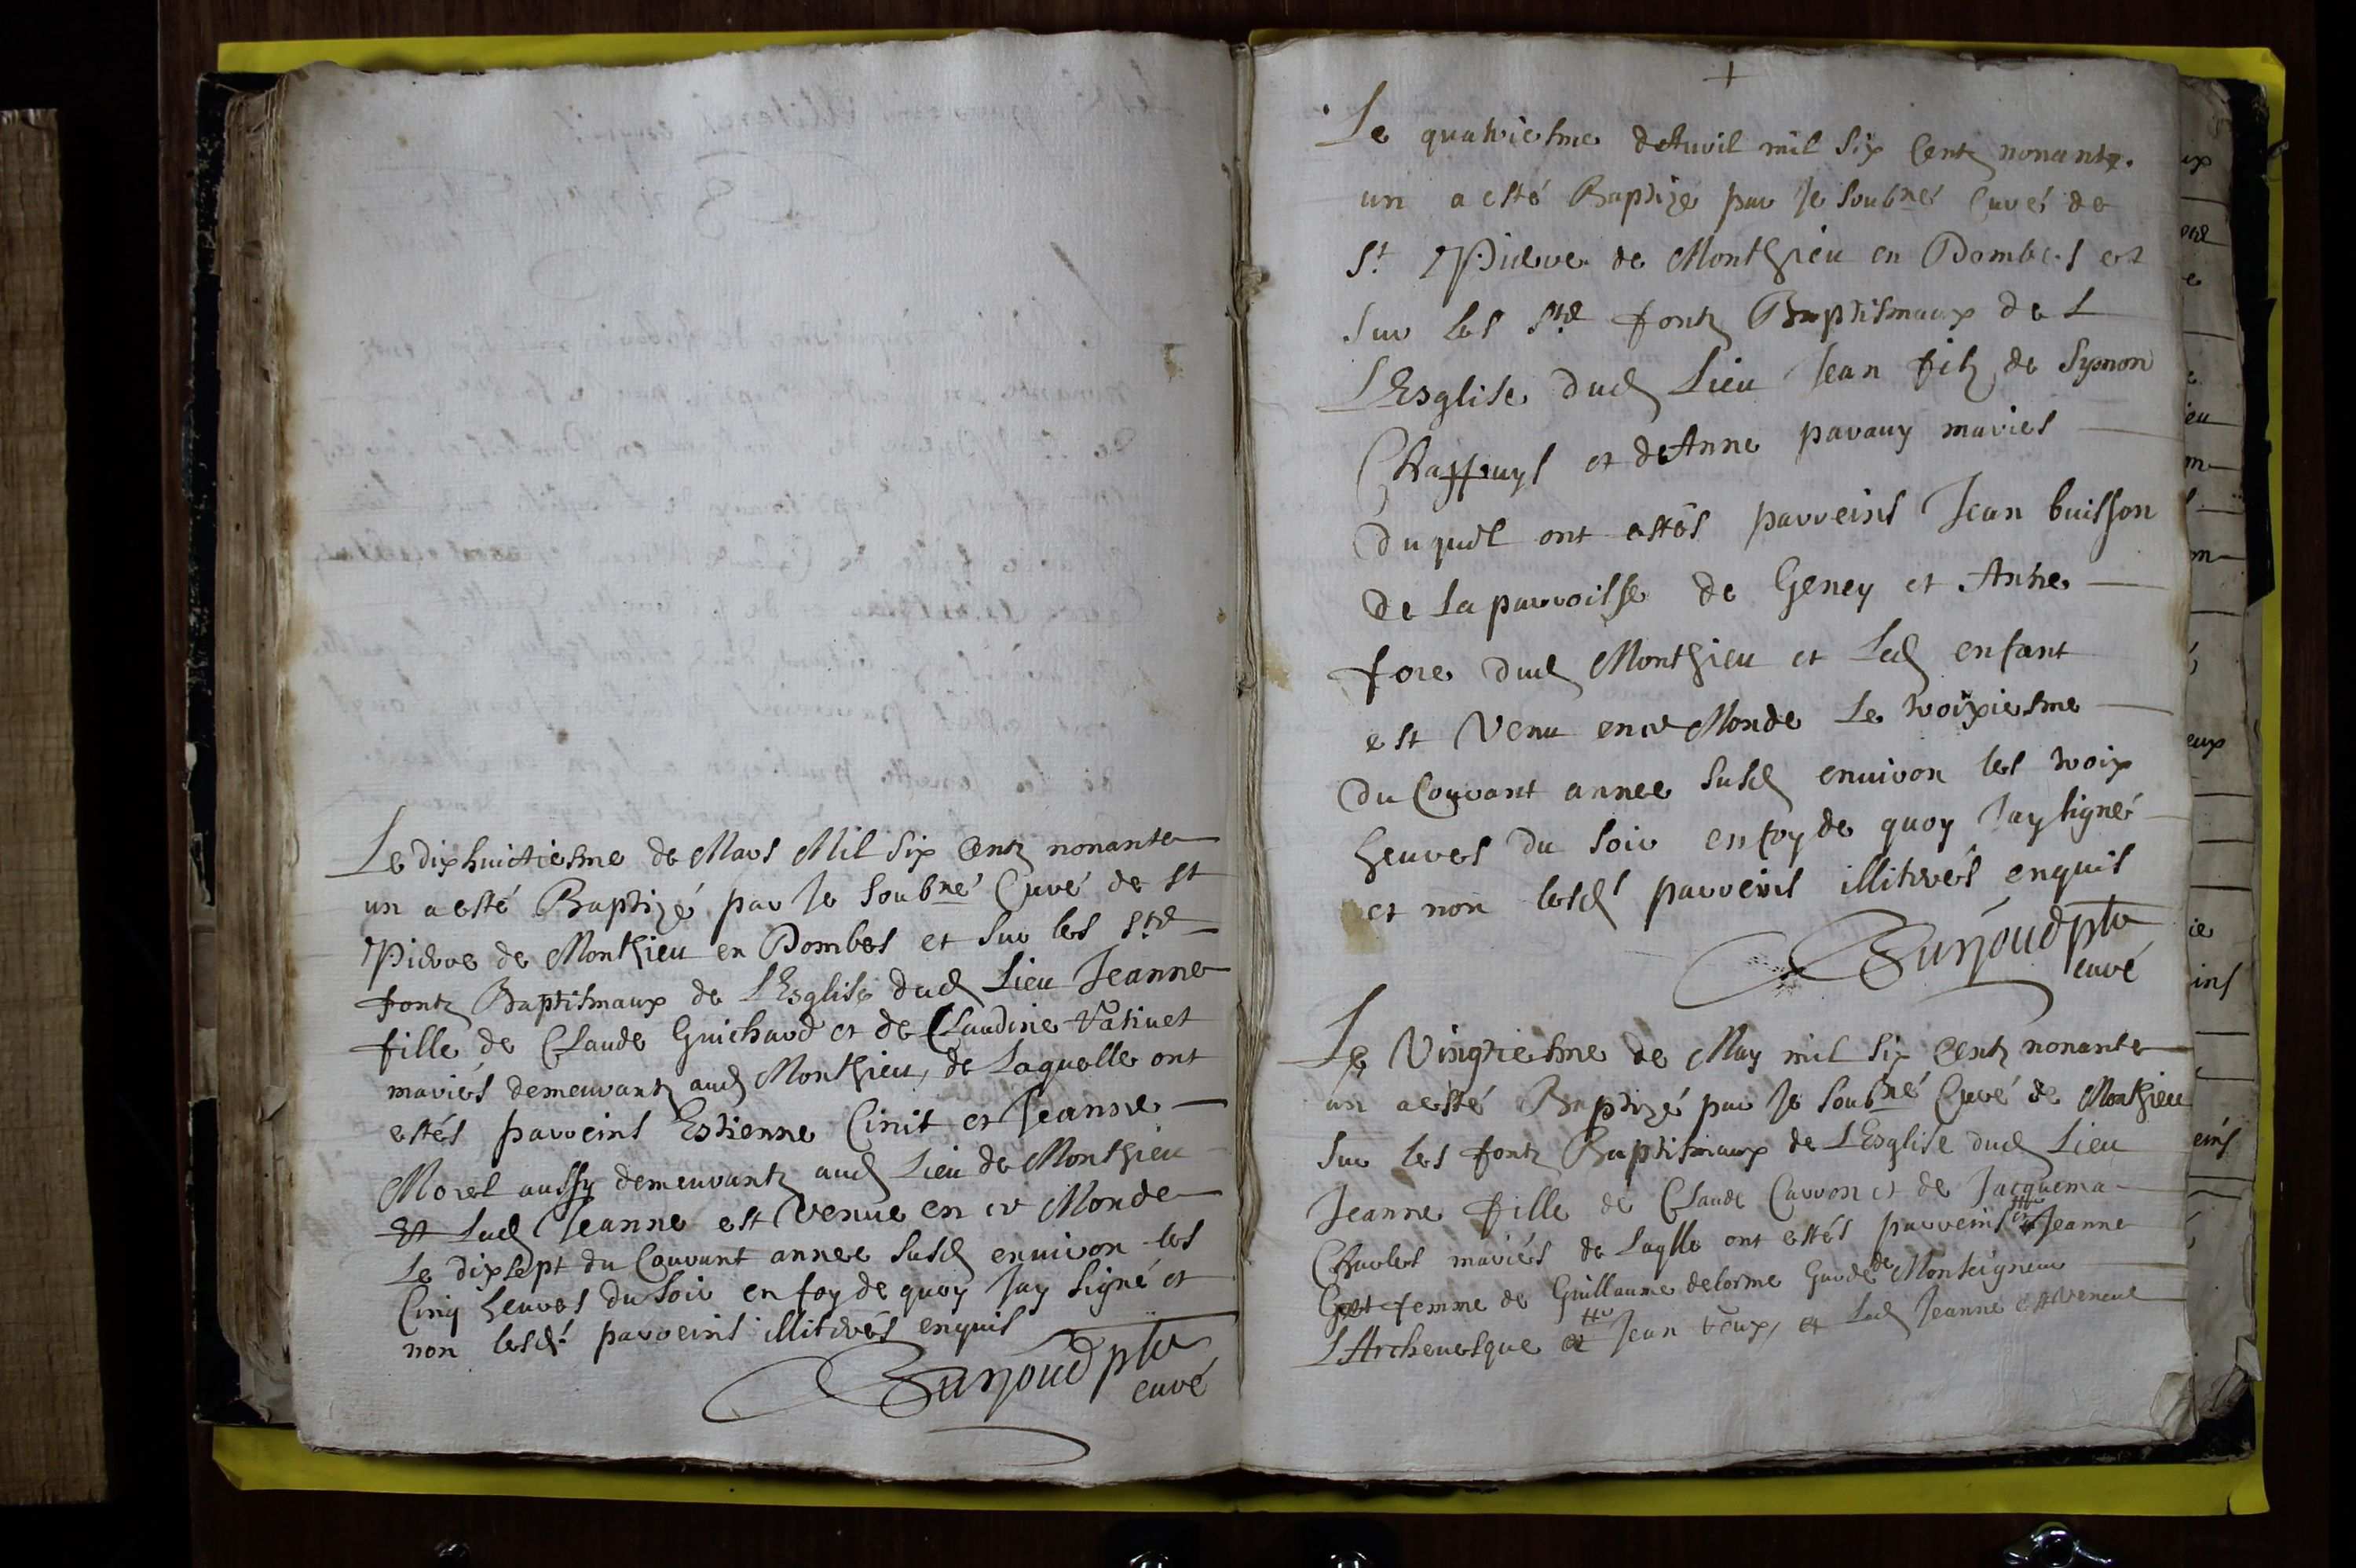 Le dixhuictiesme de Mars Mil Six Centz nonante
un a esté Baptizé par Je Soubné Curé de St
Pierre de Monthieu en Dombes et Sur les Sts
fontz Baptismaux de L'Esglise dud Lieu Jeanne
fille de Claude Guichard et de Claudine Vatinet
mariés demeurantz aud Monthieu, de Laquelle ont
estés parreins Estienne Cinit et Jeanne
Morel aussy demeurantz aud Lieu de Monthieu
Et Lad Jeanne est Venue en ce Monde
Le dixsept du Courant annee Susd enuiron les
Cinq heures du Soir en foy de quoy Jay Signé et
non lesds parreins illiterés enquis
ptre
curé
Le quatriesme de Auril mil Six Centz nonante
un a esté Baptizé par Je Soubné Curé de
St Pierre de Monthieu en Dombes et
Sur les Sts fontz Baptismaux de L
L'Esglise dud Lieu Jean filz de Symon
et de Anne mariés
Duquel ont estés parreins Jean buisson
De La parroisse de Geney et Anne
fore dud Monthieu et Led enfant
est Venu en ce Monde Le troixiesme
Du Courant annee Susd enuiron les troix
heures Du Soir en foy de quoy Jay Signé
et non lesds parreins illiterés enquis
ptre
curé
Le Vingtiesme de May mil Six Centz nonante
un a esté Baptizé par Je Soubné Curé de Monthieu
Sur les fontz Baptismaux de L'Esglise dud Lieu
Jeanne fille de Claude Carron et de Jacquema
Charles mariés de Laqlle ont estés parreins Jeanne
femme de Guillaume delorme Garde de Monseigneur
L'Archeuesque et Jean Veux, et Lad Jeanne est Venue